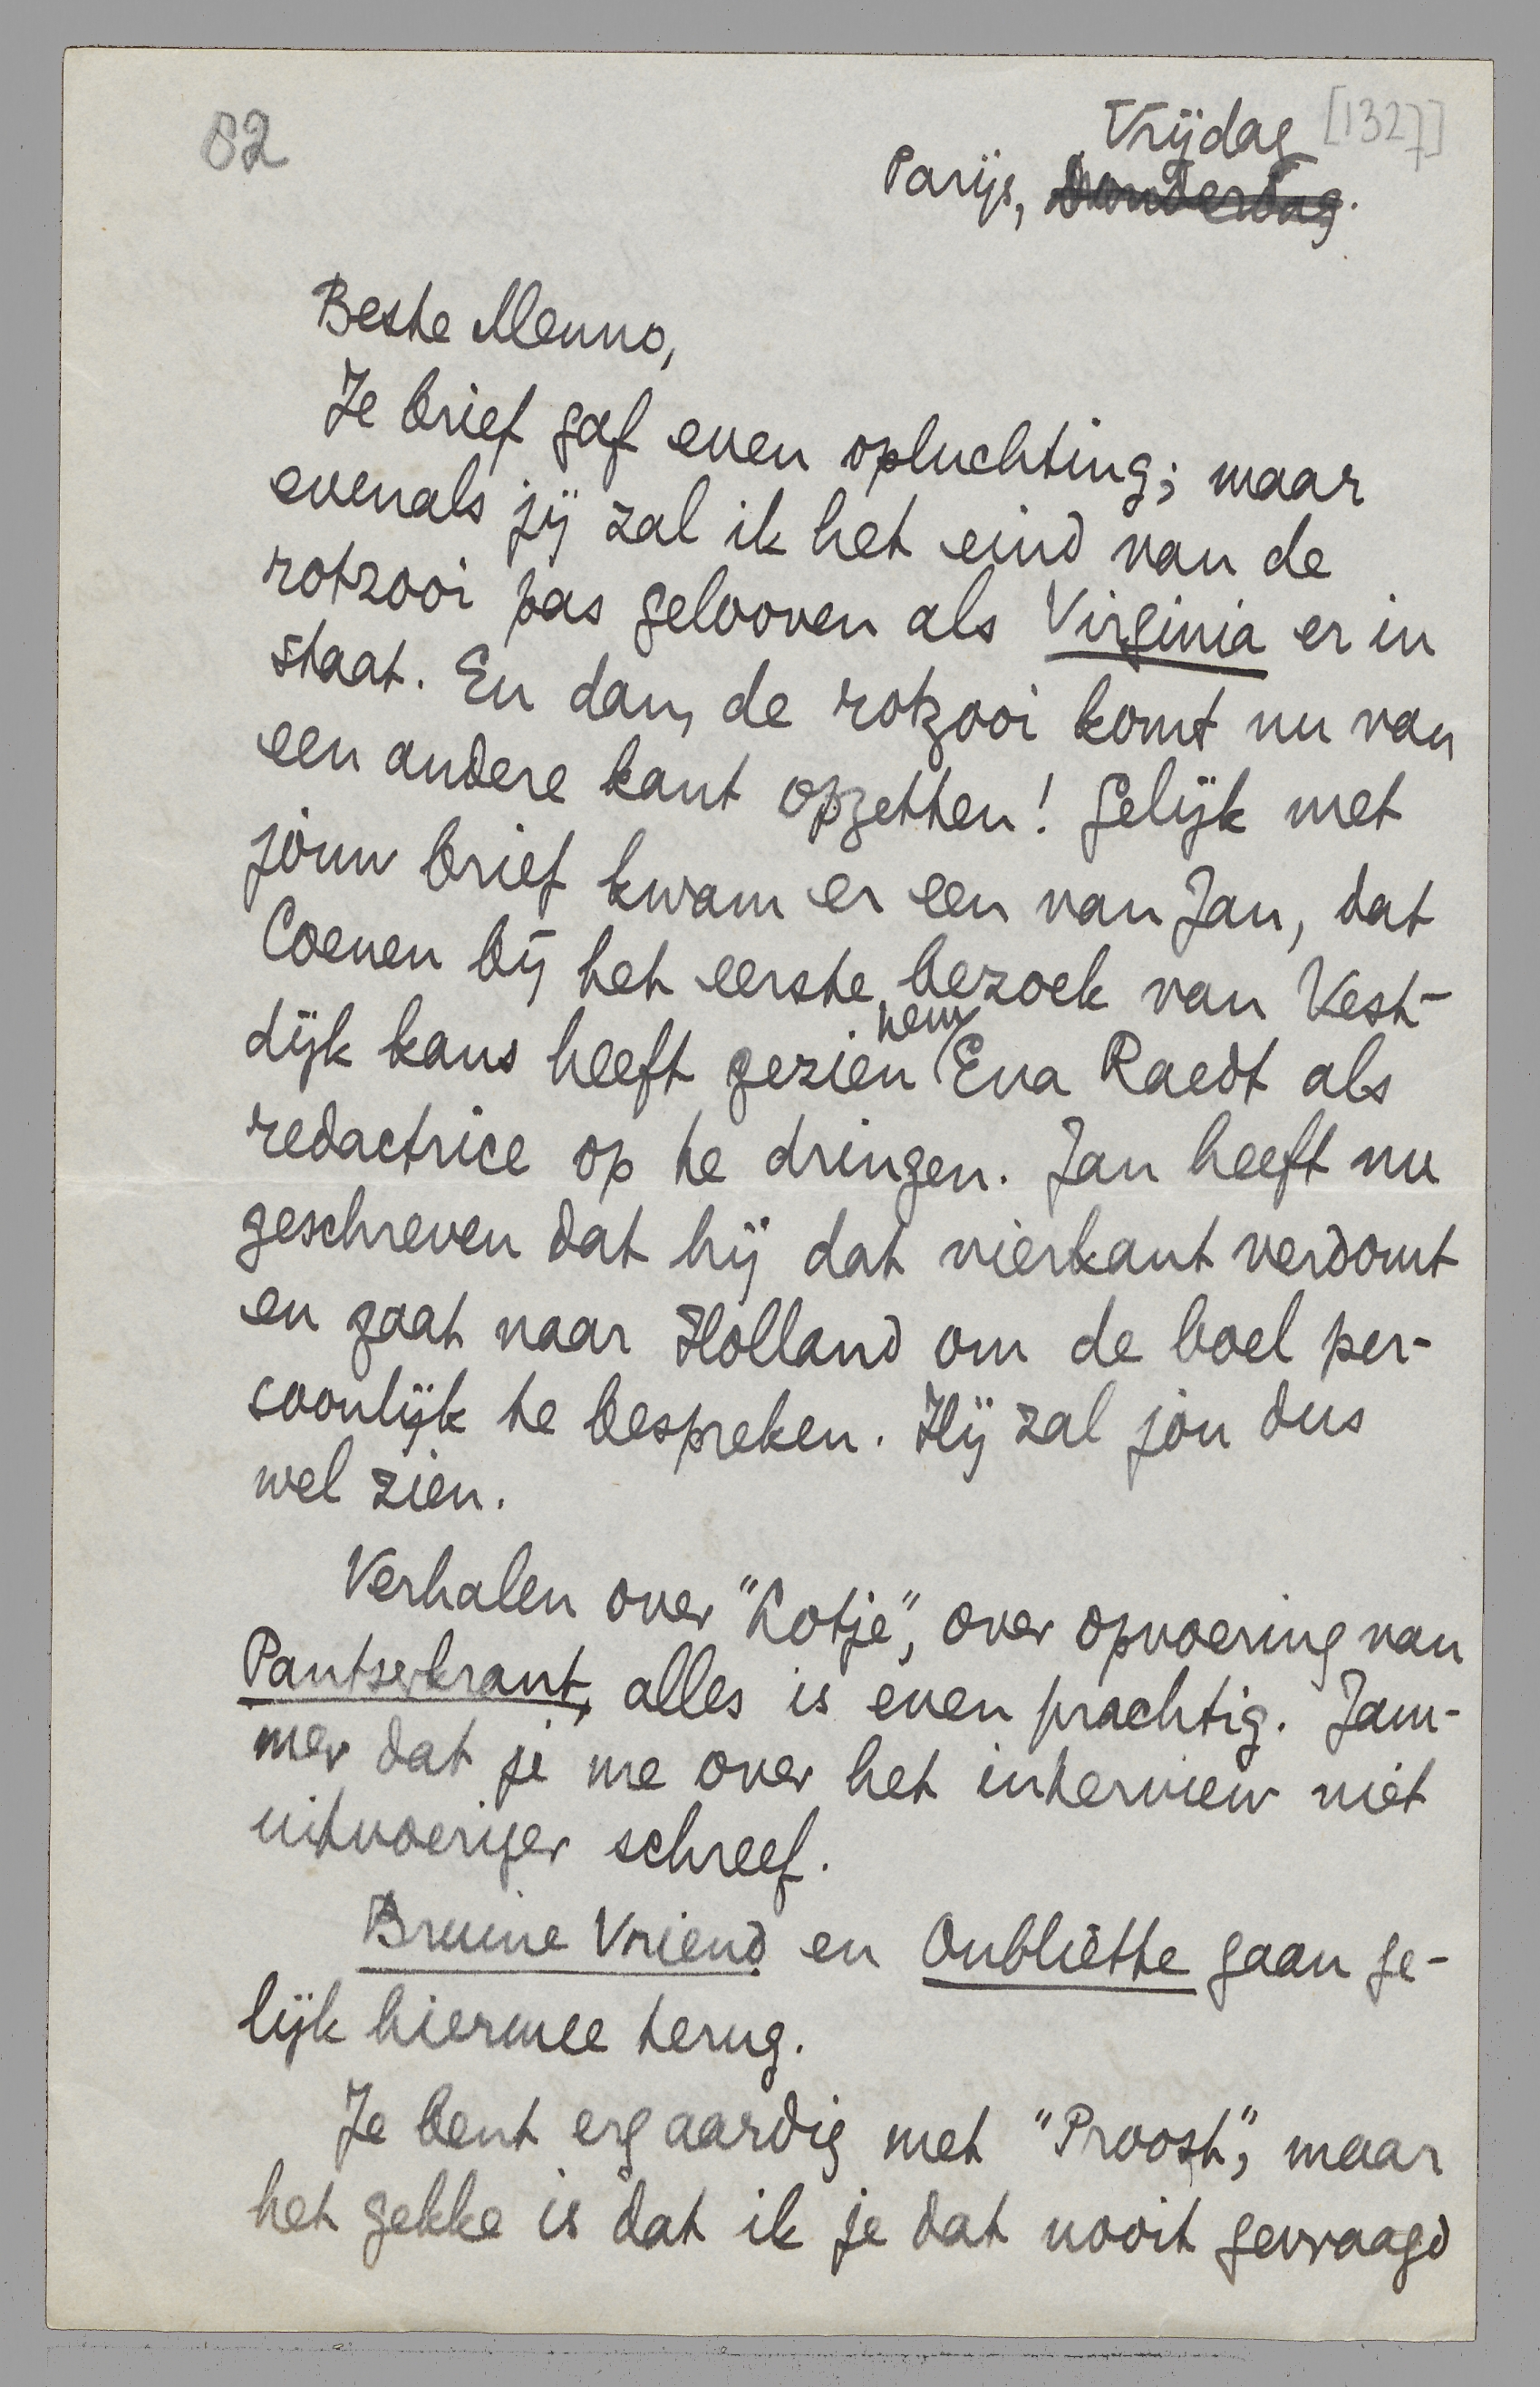 82
Vrijdag [1327]
Parijs, Donderdag.
Beste Menno,
Je brief gaf even opluchting; maar
evenals jij zal ik het eind van de
rotzooi pas gelooven als Virginia er in
staat. En dan, de rotzooi komt nu van
een andere kant opzetten! Gelijk met
jòuw brief kwam er een van Jan, dat
Coenen bij het eerste bezoek van Vest-
dijk kans heeft gezien hem Eva Raedt als
redactrice op te dringen. Jan heeft nu
geschreven dat hij dat vierkant verdomt
en gaat naar Holland om de boel per-
soonlijk te bespreken. Hij zal jòu dus
wel zien.
Verhalen over "Kotje", over opvoering van
Pantserkrant, alles is even prachtig. Jam-
mer dat je me over het interview niet
uitvoeriger schreef.
Bruine Vriend en Oubliëtte gaan ge-
lijk hiermee terug.
Je bent erg aardig met "Proost", maar
het gekke is dat ik je dat nooit gevraagd